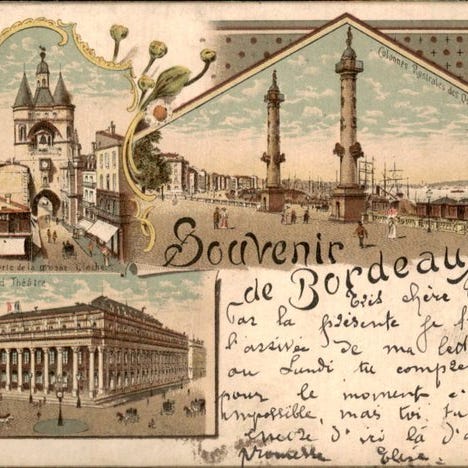 Colonnes Rostrales des Q
Porte de la Grosse Cloche
d Théâtre
Souvenir
de Bordeau
chère
Par la présente je f
l'arrivée de ma lett
au Lundi tu comple
pour le moment c
impossible, mais toi tu
encore d'ici là d'a
promesse Elise